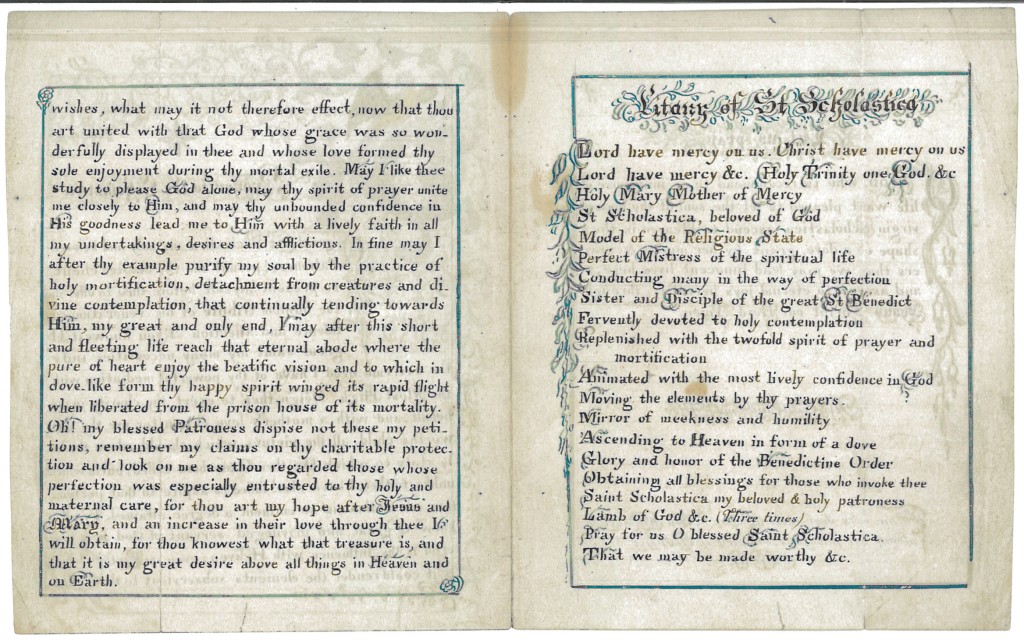 wishes, what may it not therefore effect, now that thou
art united with that God whose grace was so won-
derfully displayed in thee and whose love formed thy
sole enjoyment during thy mortal exile. May I like thee
study to please God alone, may thy spirit of prayer unite
me closely to Him, and may thy unbounded confidence in
His goodness lead me to Him with a lively faith in all
my undertakings, desires and afflictions. In fine may I
after thy example purify my soul by the practice of
holy mortification, detachment from creatures and di-
vine contemplation, that continually tending towards
Him, my great and only end, I may after this short
and fleeting life reach that eternal abode where the
pure of heart enjoy the beatific vision and to which in
dove-like form thy happy spirit winged its rapid flight
when liberated from the prison house of its mortality.
Oh! my blessed Patroness dispise not these my peti-
tions, remember my claims on thy charitable protec-
tion and look on me as thou regarded those whose
perfection was especially entrusted to thy holy and
maternal care, for thou art my hope after Jesus and
Mary, and an increase in their love through thee I
will obtain, for thou knowest what that treasure is, and
that it is my great desire above all things in Heaven and
on Earth.
Litany of St Scholastica
Lord have mercy on us. Christ have mercy on us
Lord have mercy &c. Holy Trinity one God. &c
Holy Mary Mother of Mercy
St Scholastica, beloved of God
Model of the Religious State
Perfect Mistress of the spiritual life
Conducting many in the way of perfection
Sister and Disciple of the great St Benedict
Fervently devoted to holy contemplation
Replenished with the twofold spirit of prayer and
mortification
Animated with the most lively confidence in God
Moving the elements by thy prayers.
Mirror of meekness and humility
Ascending to Heaven in form of a dove
Glory and honor of the Benedictine Order
Obtaining all blessings for those who invoke thee
Saint Scholastica my beloved & holy patroness
Lamb of God &c. (Three times)
Pray for us O blessed Saint Scholastica.
That we may be made worthy &c.